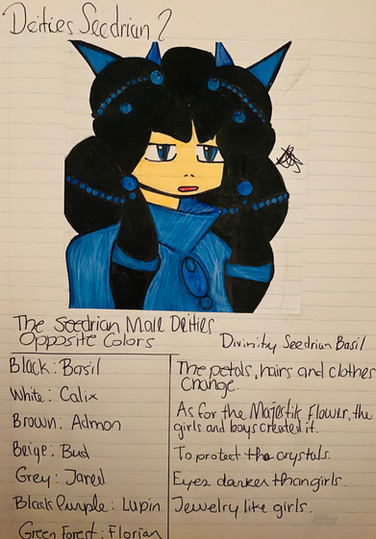 Deities Seedrian 2
The Seedrian Male Deities
Opposite Colors
Divinity Seedrian Basil
Black: Basil
White: Calix
Brown: Admon
Beige: Bud
Grey: Jared
Black Purple: Lupin
Green Forest: Florian
The petals, hairs and clothes
change.
As for the Majestik Flower, the
girls and boys created it.
To protect the crystals.
Eyes darker than girls.
Jewelry like girls.